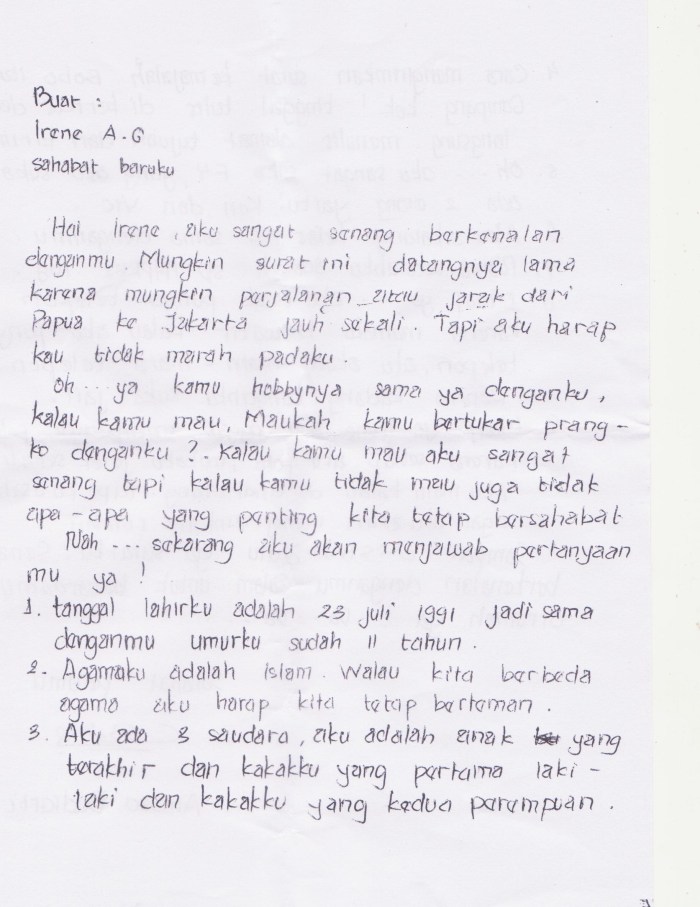 Buat :
Irene A.G
sahabat baruku
Hai Irene aku sangat senang berkenalan
denganmu Mungkin surat ini datangnya lama
karena mungkin perjalanan atau jarak dari
Papua ke Jakarta jauh sekali. Tapi aku harap
kau tidak marah padaku.
Oh... ya kamu hobbynya sama ya denganku,
kalau kamu mau, Maukah kamu bertukar prang-
ko denganku ?. Kalau kamu mau aku sangat
senang tapi kalau kamu tidak mau juga tidak
apa-apa yang penting kita tetap bersahabat
Nah... sekarang aku akan menjawab pertanyaan
mu ya !
1. tanggal lahirku adalah 23 juli 1991 jadi sama
denganmu umurku sudah 11 tahun.
2. Agamaku adalah islam. walau kita berbeda
agama aku harap kita tetap berteman.
3. Aku ada 3 saudara, aku adalah anak yang
terakhir dan kakakku yang pertama laki-
laki dan kakakku yang kedua perempuan.